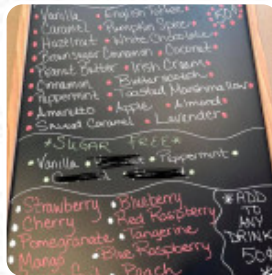 Vanilla • English Toffee •
Caramel • Pumpkin Spice •
Hazelnut • White Chocolate •
Brown Sugar Cinnamon • Coconut •
Peanut Butter • Irish Cream •
Cinnamon • Butterscotch •
Peppermint • Toasted Marshmallow •
Amaretto • Apple • Almond •
Salted Caramel • Lavender •
*SUGAR FREE*
Vanilla • • Peppermint •
• Strawberry • Blueberry
• Cherry • Red Raspberry
• Pomegranate • Tangerine
• Mango • Blue Raspberry
• Peach
*ADD
TO
ANY
DRINK
50¢